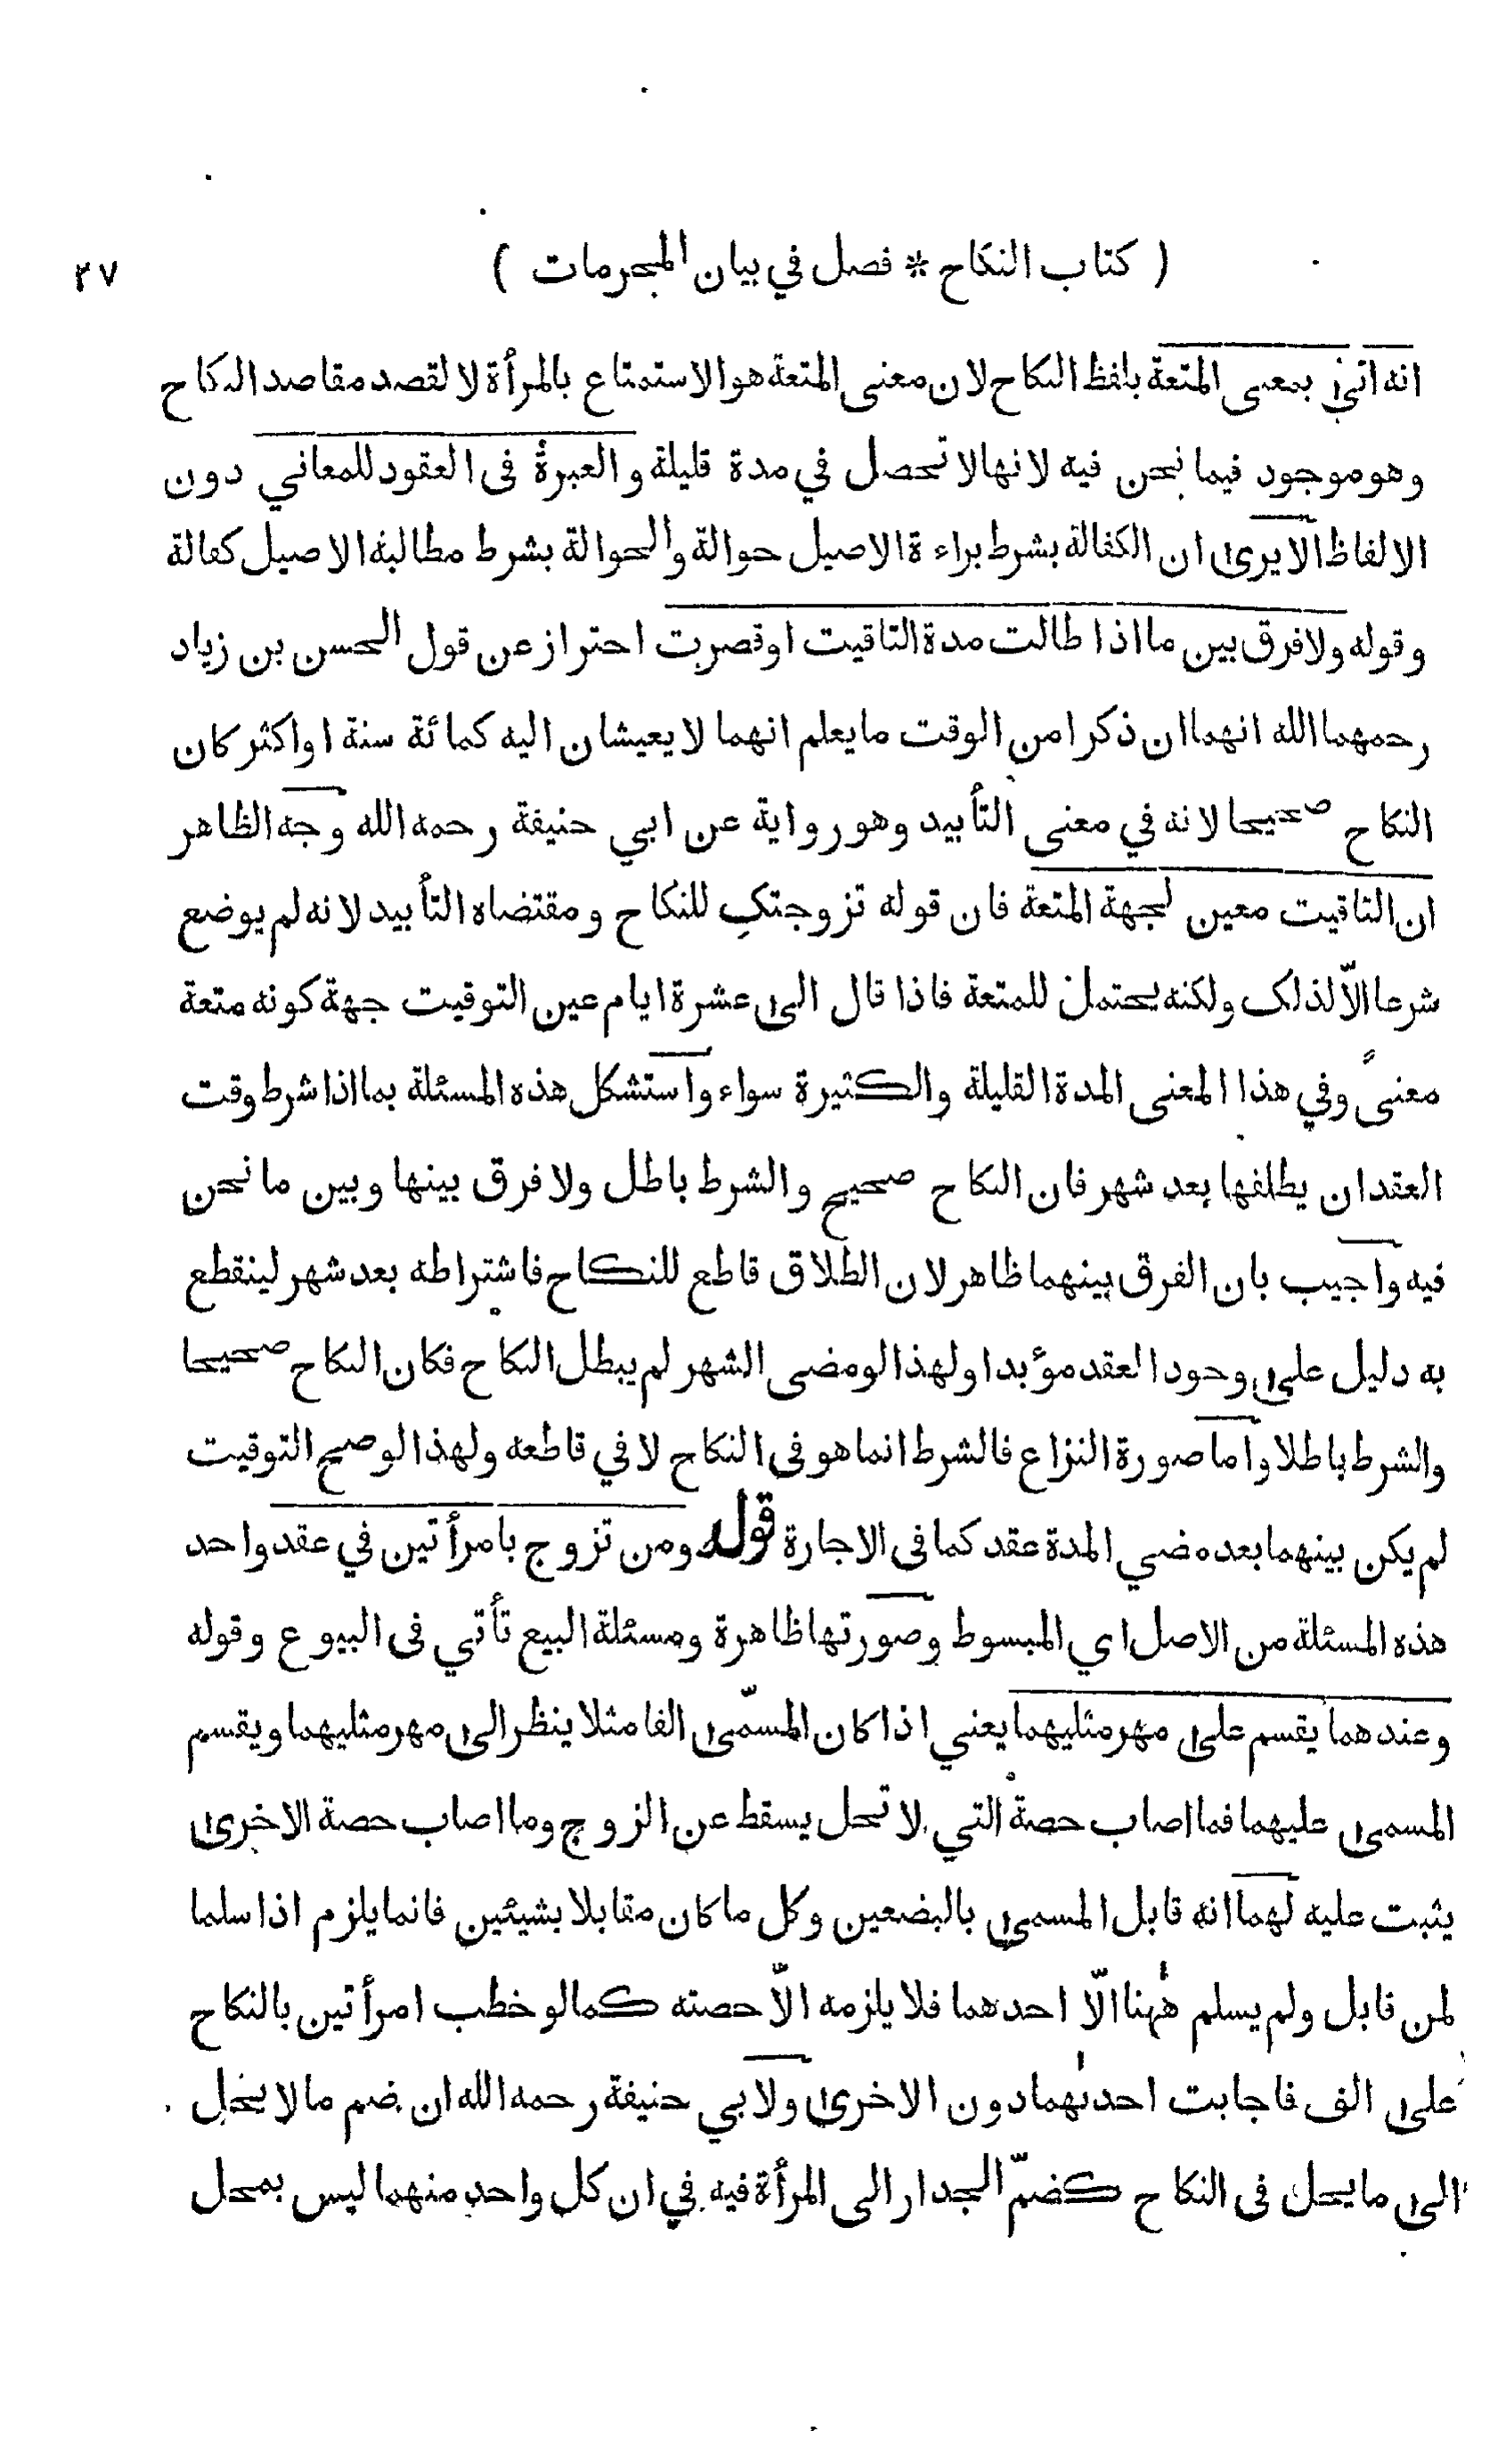 ( كتاب النكاح * فصل في بيان المحرمات ) ٢٧
انه اتى بمعنى المتعة بلفظ النكاح لان معنى المتعة هو الاستمتاع بالمرأة لا لقصد مقاصد النكاح
وهو موجود فيما نحن فيه لانها لا تحصل في مدة قليلة والعبرة فى العقود للمعاني دون
الالفاظ الا يرى ان الكفالة بشرط براءة الاصيل حوالة والحوالة بشرط مطالبة الاصيل كفالة
وقوله ولا فرق بين ما اذا طالت مدة التاقيت او قصرت احتراز عن قول الحسن بن زياد
رحمهما الله انهما ان ذكرا من الوقت ما يعلم انهما لا يعيشان اليه كمائة سنة او اكثر كان
النكاح صحيحا لانه في معنى التأبيد وهو رواية عن ابي حنيفة رحمه الله وجه الظاهر
ان التاقيت معين لجهة المتعة فان قوله تزوجتكِ للنكاح ومقتضاه التأبيد لانه لم يوضع
شرعا الّا لذلك ولكنه يحتمل للمتعة فاذا قال الى عشرة ايام عين التوقيت جهة كونه متعة
معنىً وفي هذا المعنى المدة القليلة والكثيرة سواء واستشكل هذه المسئلة بما اذا شرط وقت
العقد ان يطلقها بعد شهر فان النكاح صحيح والشرط باطل ولا فرق بينها وبين ما نحن
فيه واجيب بان الفرق بينهما ظاهر لان الطلاق قاطع للنكاح فاشتراطه بعد شهر لينقطع
به دليل على وجود العقد مؤبدا ولهذا لو مضى الشهر لم يبطل النكاح فكان النكاح صحيحا
والشرط باطلا واما صورة النزاع فالشرط انما هو فى النكاح لا في قاطعه ولهذا لو صح التوقيت
لم يكن بينهما بعد مضي المدة عقد كما فى الاجارة قوله ومن تزوج بامرأتين في عقد واحد
هذه المسئلة من الاصل اي المبسوط وصورتها ظاهرة ومسئلة البيع تأتي فى البيوع وقوله
وعندهما يقسم على مهر مثليهما يعني اذا كان المسمّى الفا مثلا ينظر الى مهر مثليهما ويقسم
المسمى عليهما فما اصاب حصة التي لا تحل يسقط عن الزوج وما اصاب حصة الاخرى
يثبت عليه لهما انه قابل المسمى بالبضعين وكل ما كان مقابلا بشيئين فانما يلزم اذا سلما
لمن قابل ولم يسلم ههنا الّا احدهما فلا يلزمه الّا حصته كما لو خطب امرأتين بالنكاح
على الف فاجابت احدٰهما دون الاخرى ولابي حنيفة رحمه الله ان ضم ما لا يحل
الى ما يحل فى النكاح كضمّ الجدار الى المرأة فيه في ان كل واحد منهما ليس بمحل